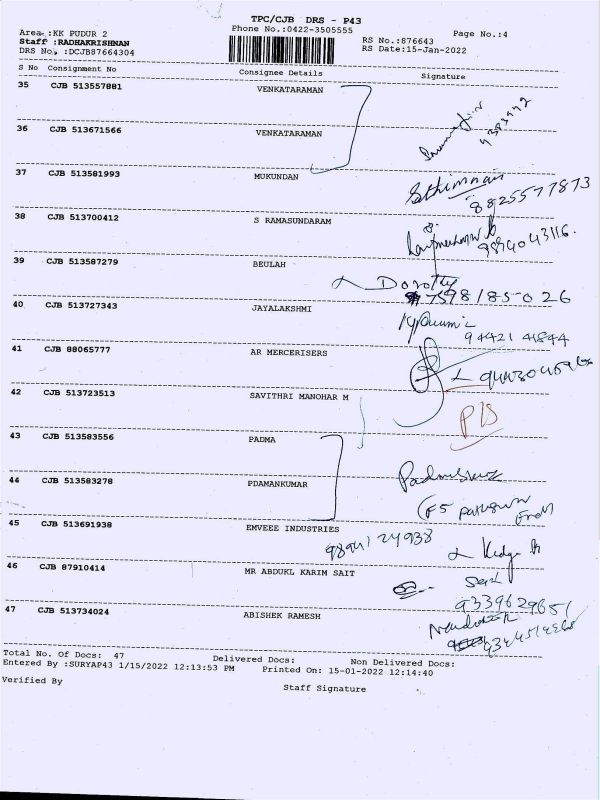 TPC/CJB DRS - P43
Area :KK PUDUR 2 Phone No.:0422-3505555 Page No.:4
Staff :RADHAKRISHNAN RS No.:876643
DRS No. :DCJB87664304 RS Date:15-Jan-2022
S No Consignment No Consignee Details Signature
35 CJB 513557881 VENKATARAMAN
36 CJB 513671566 VENKATARAMAN
37 CJB 513581993 MUKUNDAN
8825577873
38 CJB 513700412 S RAMASUNDARAM
9894043116.
39 CJB 513587279 BEULAH
Dorothy
7598185026
40 CJB 513727343 JAYALAKSHMI
94421 41844
41 CJB 88065777 AR MERCERISERS
42 CJB 513723513 SAVITHRI MANOHAR M
43 CJB 513583556 PADMA
44 CJB 513583278 PDAMANKUMAR
45 CJB 513691938 EMVEEE INDUSTRIES
9894124938
46 CJB 87910414 MR ABDUKL KARIM SAIT
9339629651
47 CJB 513734024 ABISHEK RAMESH
Total No. Of Docs: 47 Delivered Docs: Non Delivered Docs:
Entered By :SURYAP43 1/15/2022 12:13:53 PM Printed On: 15-01-2022 12:14:40
Verified By Staff Signature